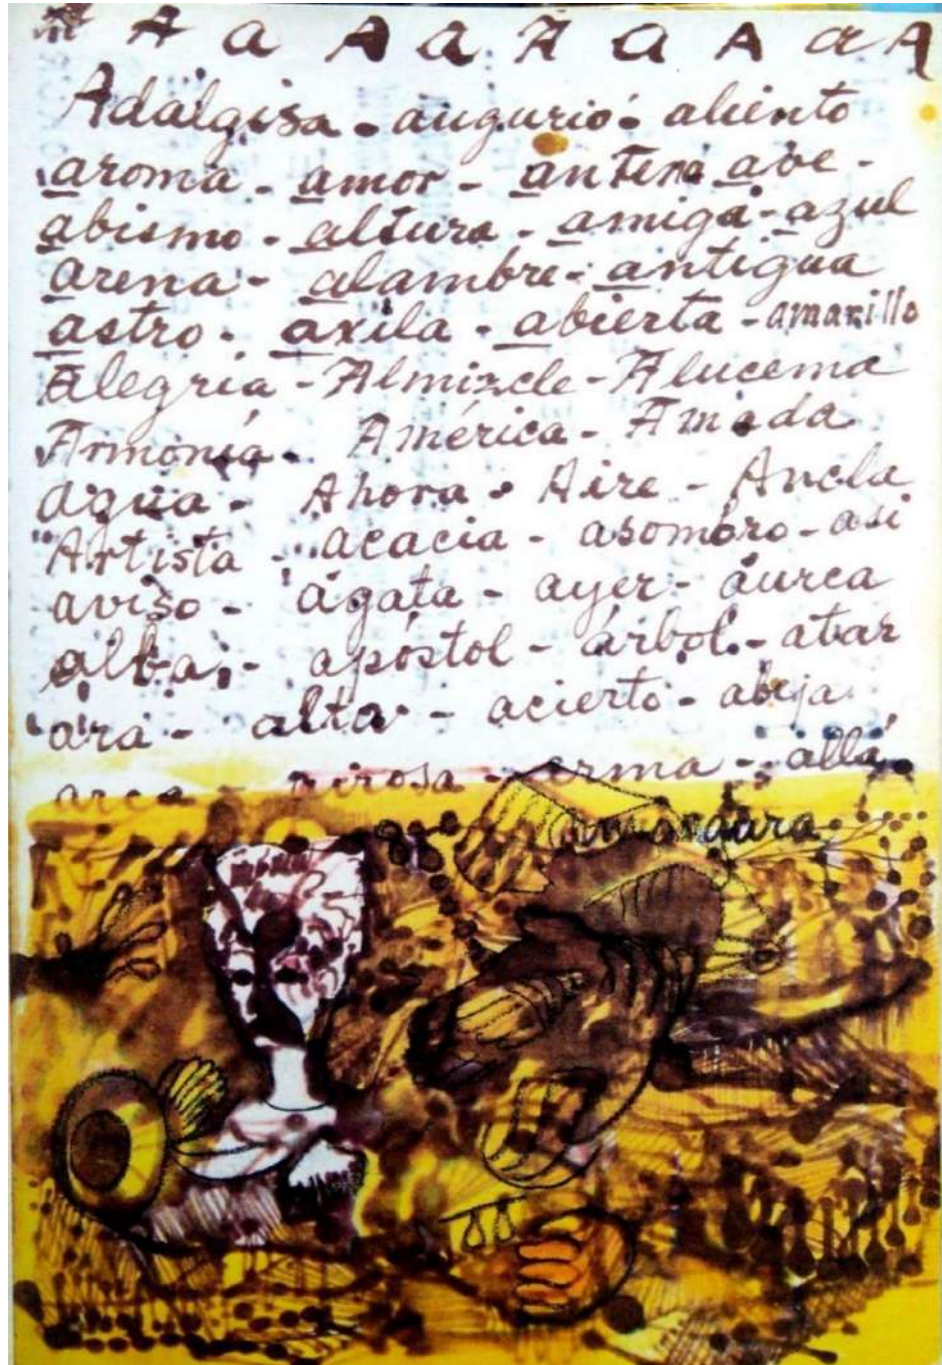 A a A a A a A a A
Adalgisa - augurio - aliento
aroma - amor - antena ave -
abismo - altura - amiga - azul
arena - alambre - antigua
astro - axila - abierta - amarillo
Alegría - Almizcle - Alucema
Armonía - América - Amada
agua - Ahora - Aire - Ancla
Artista - acacia - asombro - asi
aviso - ágata - ayer - áurea
alba - apóstol - árbol - atar
ara - alta - acierto - abeja
arma - allá